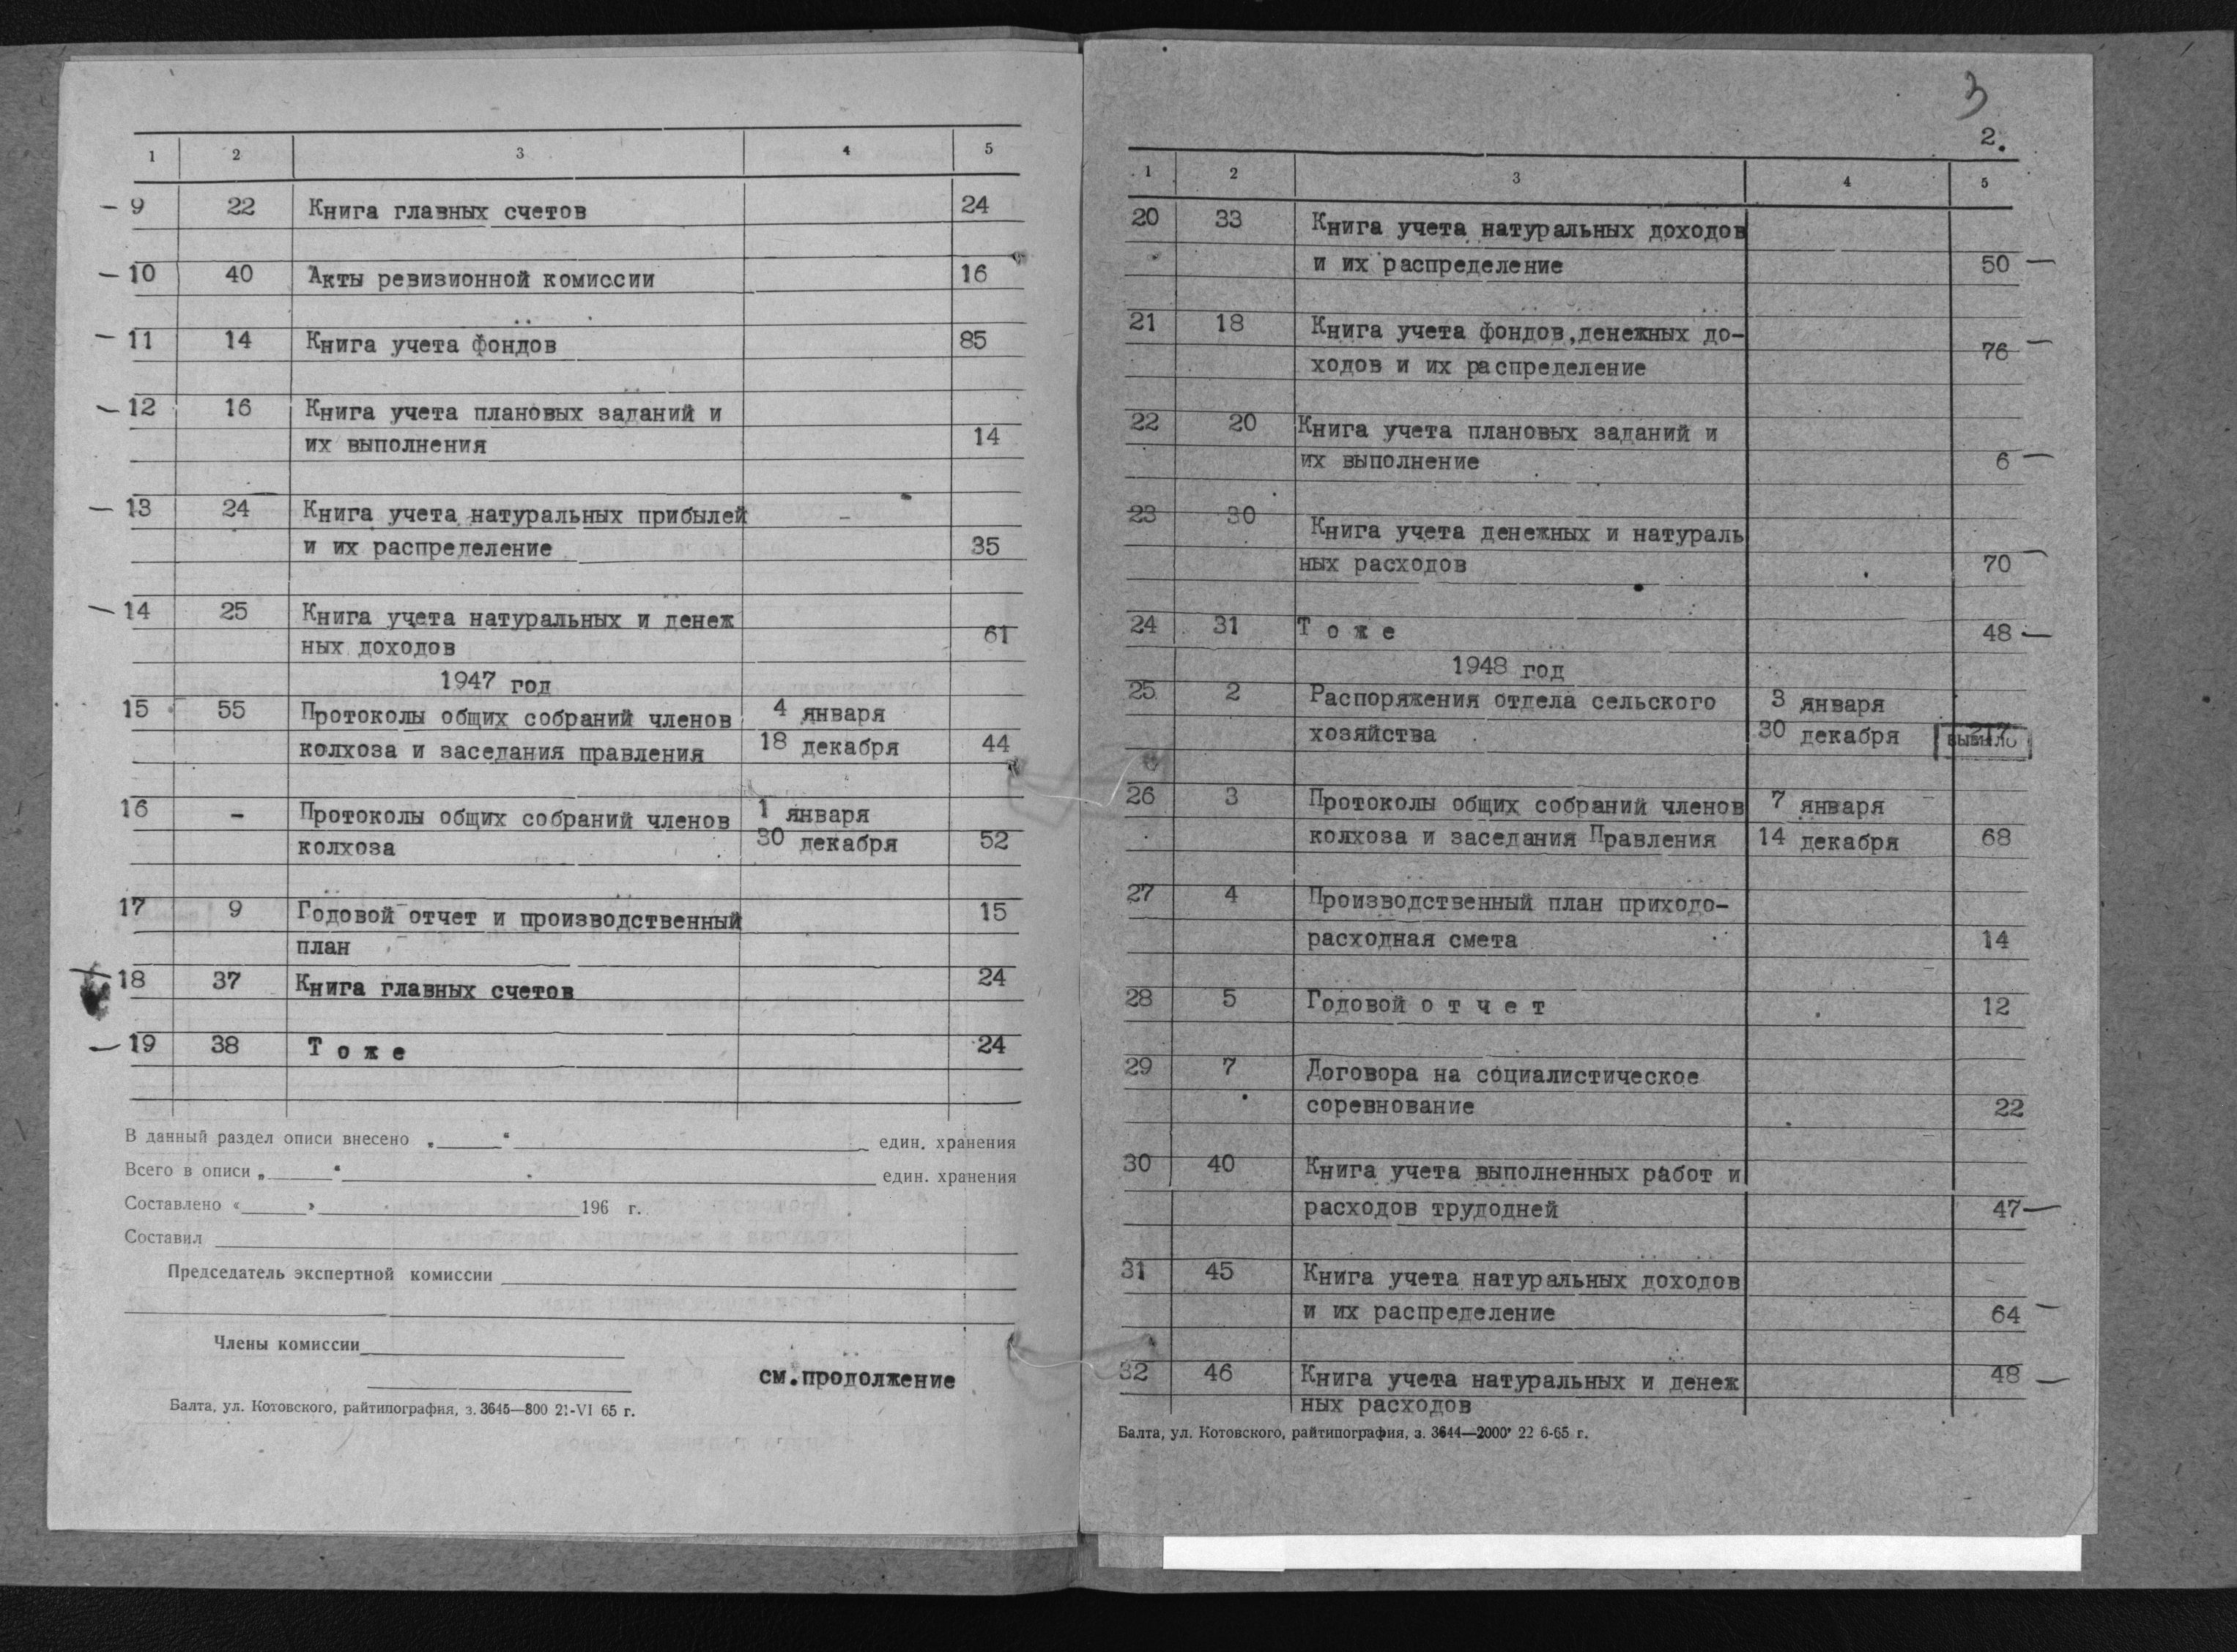 1 2 3 4 5
9 22 Книга главных счетов 24
10 40 Акты ревизионной комиссии 16
11 14 Книга учета фондов 85
12 16 Книга учета плановых заданий и
их выполнения 14
13 24 Книга учета натуральных прибылей
и их распределение 35
14 25 Книга учета натуральных и денеж
ных доходов 61
1947 год
15 55 Протоколы общих собраний членов 4 января
колхоза и заседания правления 18 декабря 44
16 - Протоколы общих собраний членов 1 января
колхоза 30 декабря 52
17 9 Годовой отчет и производственный 15
план
18 37 Книга главных счетов 24
19 38 Т о ж е 24
В данный раздел описи внесено „ “ един. хранения
Всего в описи „ “ един. хранения
Составлено « » 196 г.
Составил
Председатель экспертной комиссии
Члены комиссии
см.продолжение
Балта, ул. Котовского, райтипография, з. 3645—800 21-VI 65 г.
3
2.
1 2 3 4 5
20 33 Книга учета натуральных доходов
и их распределение 50
21 18 Книга учета фондов,денежных до-
76
ходов и их распределение
22 20 Книга учета плановых заданий и
их выполнение 6
23 30 Книга учета денежных и натураль
ных расходов 70
24 31 Т о ж е 48
1948 год
25 2 Распоряжения отдела сельского 3 января
хозяйства 30 декабря 217 ВЫБЫЛО
26 3 Протоколы общих собраний членов 7 января
колхоза и заседания Правления 14 декабря 68
27 4 Производственный план приходо-
расходная смета 14
28 5 Годовой о т ч е т 12
29 7 Договора на социалистическое
соревнование 22
30 40 Книга учета выполненных работ и
расходов трудодней 47
31 45 Книга учета натуральных доходов
и их распределение 64
32 46 Книга учета натуральных и денеж 48
ных расходов
Балта, ул. Котовского, райтипография, з. 3644—2000 22 6-65 г.